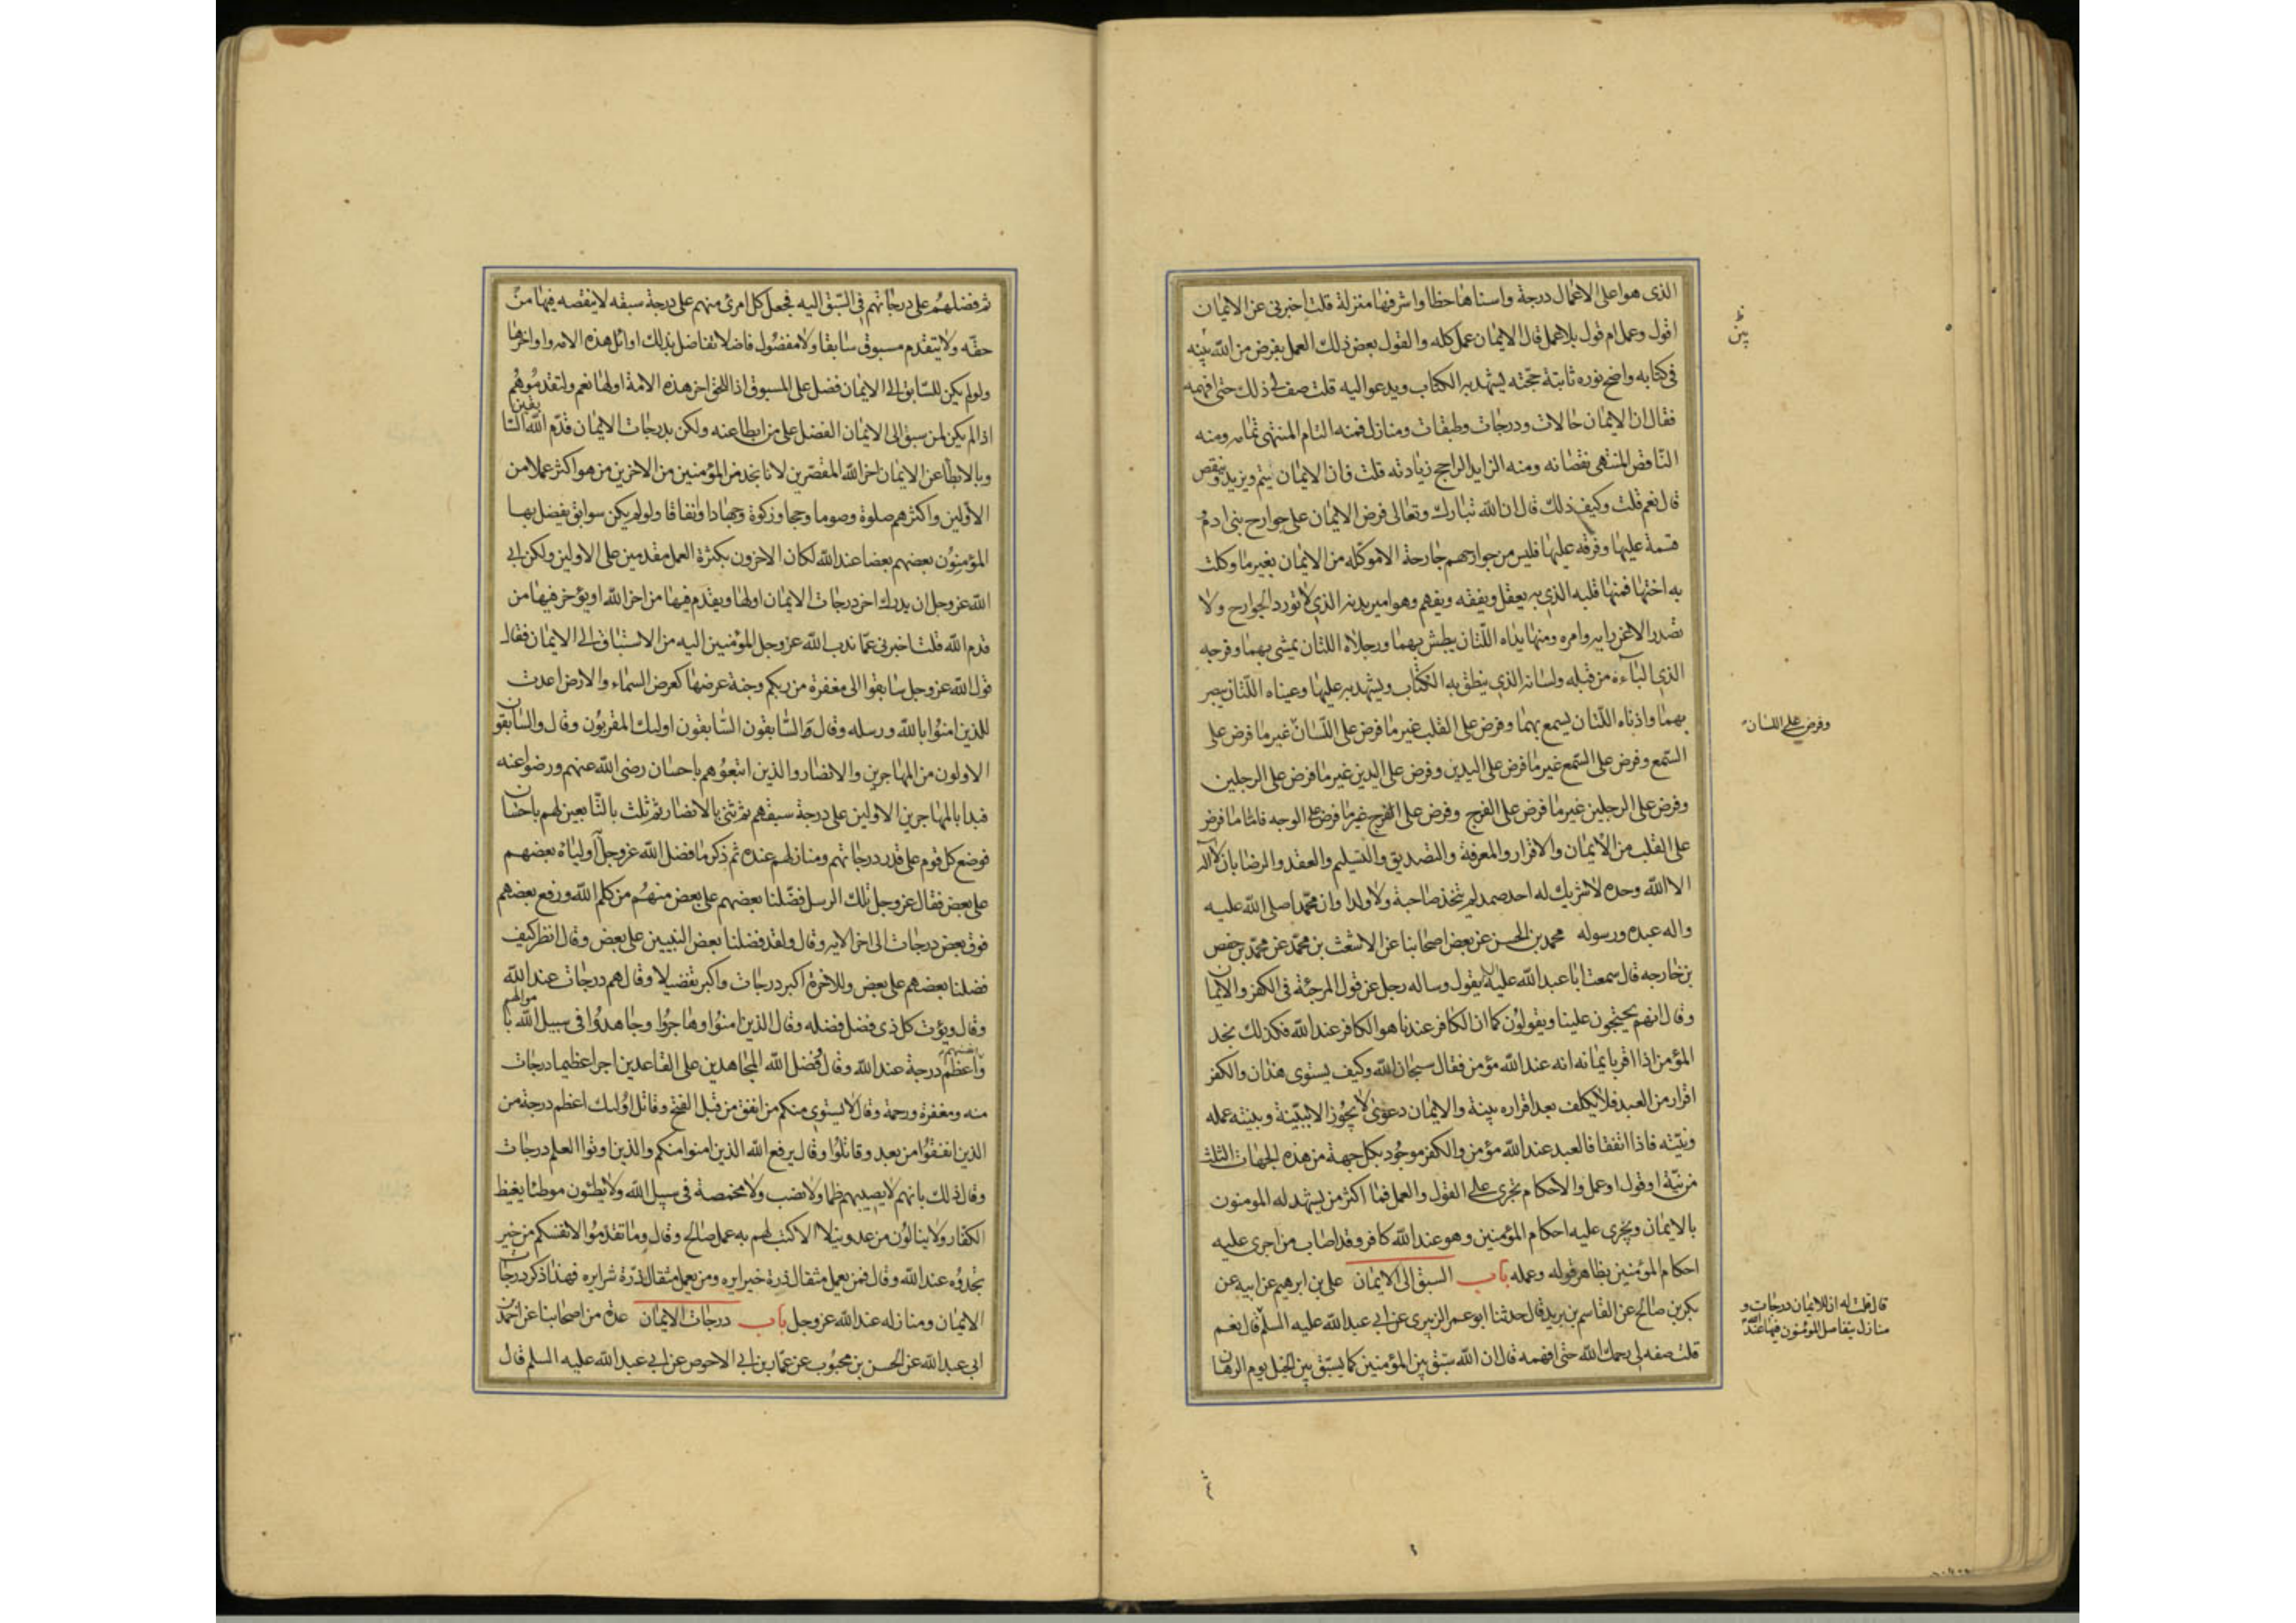 الذى هو اعلى الاعمال درجة واسناها حظا واشرفها منزلة قلت اخبرنى عن الايمان
اقول وعمل ام قول بلا عمل قال الايمان عمل كله والقول بعض ذلك العمل بفرض من الله بينه
فى كتابه واضح نوره ثابتة حجته يشهد به الكتاب ويدعو اليه قلت صف لى ذلك حتى افهمه
فقال ان الايمان حالات ودرجات وطبقات ومنازل فمنه التام المنتهى تمامه ومنه
الناقص المنتهى نقصانه ومنه الزايد الراجح زيادته قلت فان الايمان يتم ويزيد وينقص
قال نعم قلت وكيف ذلك قال ان الله تبارك وتعالى فرض الايمان على جوارح بنى ادم
قسمة عليها وفرقه عليها فليس من جوارحهم جارحة الا موكله من الايمان بغير ما وكلت
به اختها فمنها قلبه الذى به يعقل ويفقه ويفهم وهو امير بدنه الذى لا تورد الجوارح ولا
تصدر الا عن رايه وامره ومنها يداه اللتان يبطش بهما ورجلاه اللتان يمشى بهما وفرجه
الذى الباءة من قبله ولسانه الذى ينطق به الكتاب ويشهد به عليها وعيناه اللتان يبصر
بهما واذناه اللتان يسمع بهما وفرض على القلب غير ما فرض على اللسان غير ما فرض على
وفرض على اللسان
السمع وفرض على السمع غير ما فرض على اليدين وفرض على اليدين غير ما فرض على الرجلين
وفرض على الرجلين غير ما فرض على الفرج وفرض على الفرج غير ما فرض على الوجه فاما ما فرض
على القلب من الايمان والاقرار والمعرفة والتصديق والتسليم والعقد والرضا بان لا اله
الا الله وحده لا شريك له احد صمد لم يتخذ صاحبة ولا ولدا وان محمدا صلى الله عليه
واله عبده ورسوله محمد بن الحسن عن بعض اصحابنا عن الاشعث بن محمد عن محمد بن حفص
بن خارجه قال سمعت ابا عبد الله عليه يقول وساله رجل عن قول المرجئة فى الكفر والايمان
وقال انهم يحتجون علينا ويقولون كما ان الكافر عندنا هو الكافر عند الله فكذلك نجد
المؤمن اذا اقر بايمانه انه عند الله مؤمن فقال سبحان الله وكيف يستوى هذان والكفر
اقرار من العبد فلا يكلف بعد اقراره بينة والايمان دعوى لا يجوز الا ببينة وبينته عمله
ونيته فاذا اتفقا فالعبد عند الله مؤمن والكفر موجود بكل جهة من هذه الجهات الثلث
من نية او قول او عمل والاحكام تجرى على القول والعمل فما اكثر من يشهد له المومنون
بالايمان ويجرى عليه احكام المؤمنين وهو عند الله كافر وقد اصاب من اجرى عليه
احكام المؤمنين بظاهر قوله وعمله باب السبق الى الايمان على بن ابرهيم عن ابيه عن
بكر بن صالح عن القاسم بن بريد قال حدثنا ابو عمر الزبيرى عن ابى عبد الله عليه السلم قال نعم
قال قلت له ان للايمان درجات و
منازل يتفاضل المؤمنون فيها عند الله
قلت صفه لى رحمك الله حتى افهمه قال ان الله سبق بين المؤمنين كما يسبق بين الخيل يوم الرهان
ثم فضلهم على درجاتهم فى السبق اليه فجعل كل امرئ منهم على درجة سبقه لا ينقصه فيها من
حقه ولا يتقدم مسبوق سابقا ولا مفضول فاضلا تفاضل بذلك اوائل هذه الامه واواخرها
ولو لم يكن للسابق الى الايمان فضل على المسبوق اذا للحق اخر هذه الامة اولها نعم ولتقدموهم
اذا لم يكن لمن سبق الى الايمان الفضل على من ابطا عنه ولكن بدرجات الايمان قدم الله السابقين
وبالابطأ عن الايمان اخر الله المقصرين لانا نجد من المؤمنين من الاخرين من هو اكثر عملا من
الاولين واكثرهم صلوة وصوما وحجا وزكوة وجهادا وانفاقا ولو لم يكن سوابق يفضل بها
المؤمنون بعضهم بعضا عند الله لكان الاخرون بكثرة العمل مقدمين على الاولين ولكن ابى
الله عز وجل ان يدرك اخر درجات الايمان اولها ويقدم فيها من اخر الله او يؤخر فيها من
قدم الله قلت اخبرنى عما ندب الله عز وجل المؤمنين اليه من الاستباق الى الايمان فقال
قول الله عز وجل سابقوا الى مغفرة من ربكم وجنة عرضها كعرض السماء والارض اعدت
للذين امنوا بالله ورسله وقال والسابقون السابقون اولئك المقربون وقال والسابقون
الاولون من المهاجرين والانصار والذين اتبعوهم باحسان رضى الله عنهم ورضوا عنه
فبدا بالمهاجرين الاولين على درجة سبقهم ثم ثنى بالانصار ثم ثلث بالتابعين لهم باحسان
فوضع كل قوم على قدر درجاتهم ومنازلهم عنده ثم ذكر ما فضل الله عز وجل اولياه بعضهم
على بعض فقال عز وجل تلك الرسل فضلنا بعضهم على بعض منهم من كلم الله ورفع بعضهم
فوق بعض درجات الى اخر الايه وقال ولقد فضلنا بعض النبيين على بعض وقال انظر كيف
فضلنا بعضهم على بعض وللاخرة اكبر درجات واكبر تفضيلا وقال هم درجات عند الله
وقال ويؤت كل ذى فضل فضله وقال الذين امنوا وهاجروا وجاهدوا فى سبيل الله باموالهم
وانفسهم اعظم درجة عند الله وقال فضل الله المجاهدين على القاعدين اجرا عظيما درجات
منه ومغفرة ورحمة وقال لا يستوى منكم من انفق من قبل الفتح وقاتل اولئك اعظم درجة من
الذين انفقوا من بعد وقاتلوا وقال يرفع الله الذين امنوا منكم والذين اوتوا العلم درجات
وقال ذلك بانهم لا يصيبهم ظما ولا نصب ولا مخمصة فى سبيل الله ولا يطئون موطئا يغيظ
الكفار ولا ينالون من عدو نيلا الا كتب لهم به عمل صالح وقال وما تقدموا لانفسكم من خير
تجدوه عند الله وقال فمن يعمل مثقال ذرة خيرا يره ومن يعمل مثقال ذرة شرا يره فهذا ذكر درجات
الايمان ومنازله عند الله عز وجل باب درجات الايمان عدة من اصحابنا عن احمد بن
ابى عبد الله عن الحسن بن محبوب عن عمار بن ابى الاحوص عن ابى عبد الله عليه السلم قال